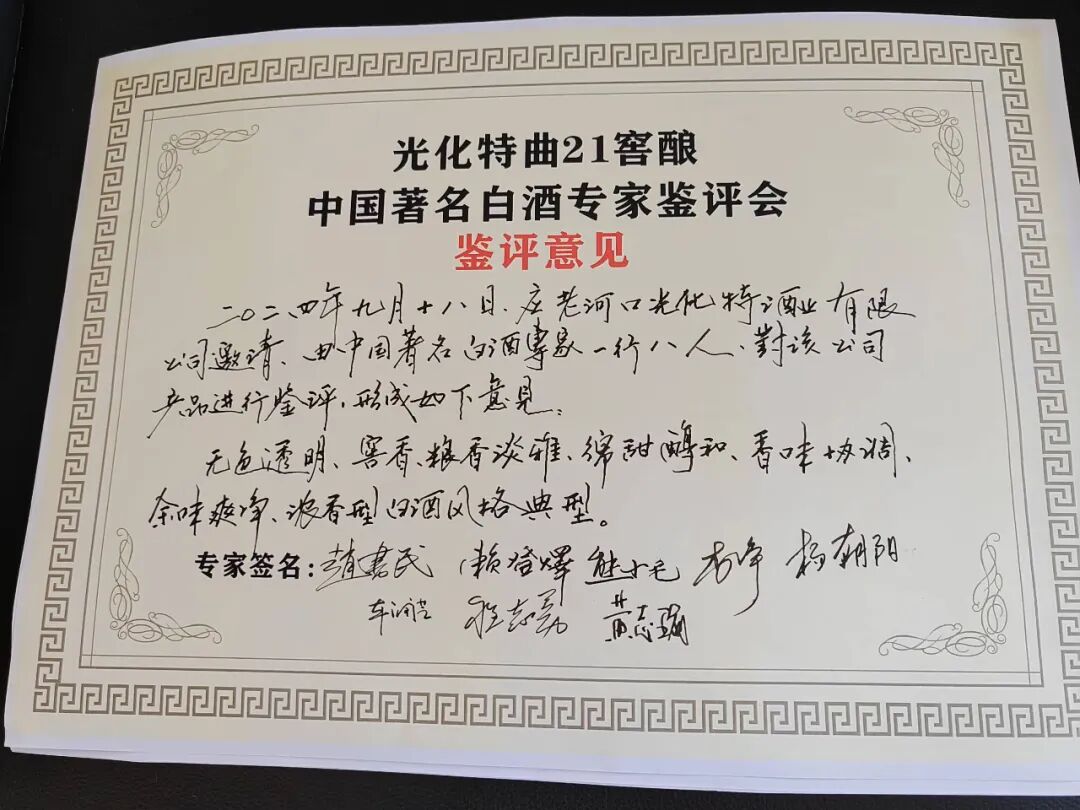 光化特曲21窖酿
中国著名白酒专家鉴评会
鉴评意见
二〇二四年九月十八日、应老河口光化特酒业有限
公司邀请、由中国著名白酒專家一行八人、對该公司
产品进行鉴评，形成如下意見：
无色透明、窖香、粮香淡雅、绵甜醇和、香味协调、
余味爽净、浓香型白酒风格典型。
专家签名：趙書民 賴登燡 熊小毛 李净 杨朝阳
程志勇 黄志瑜